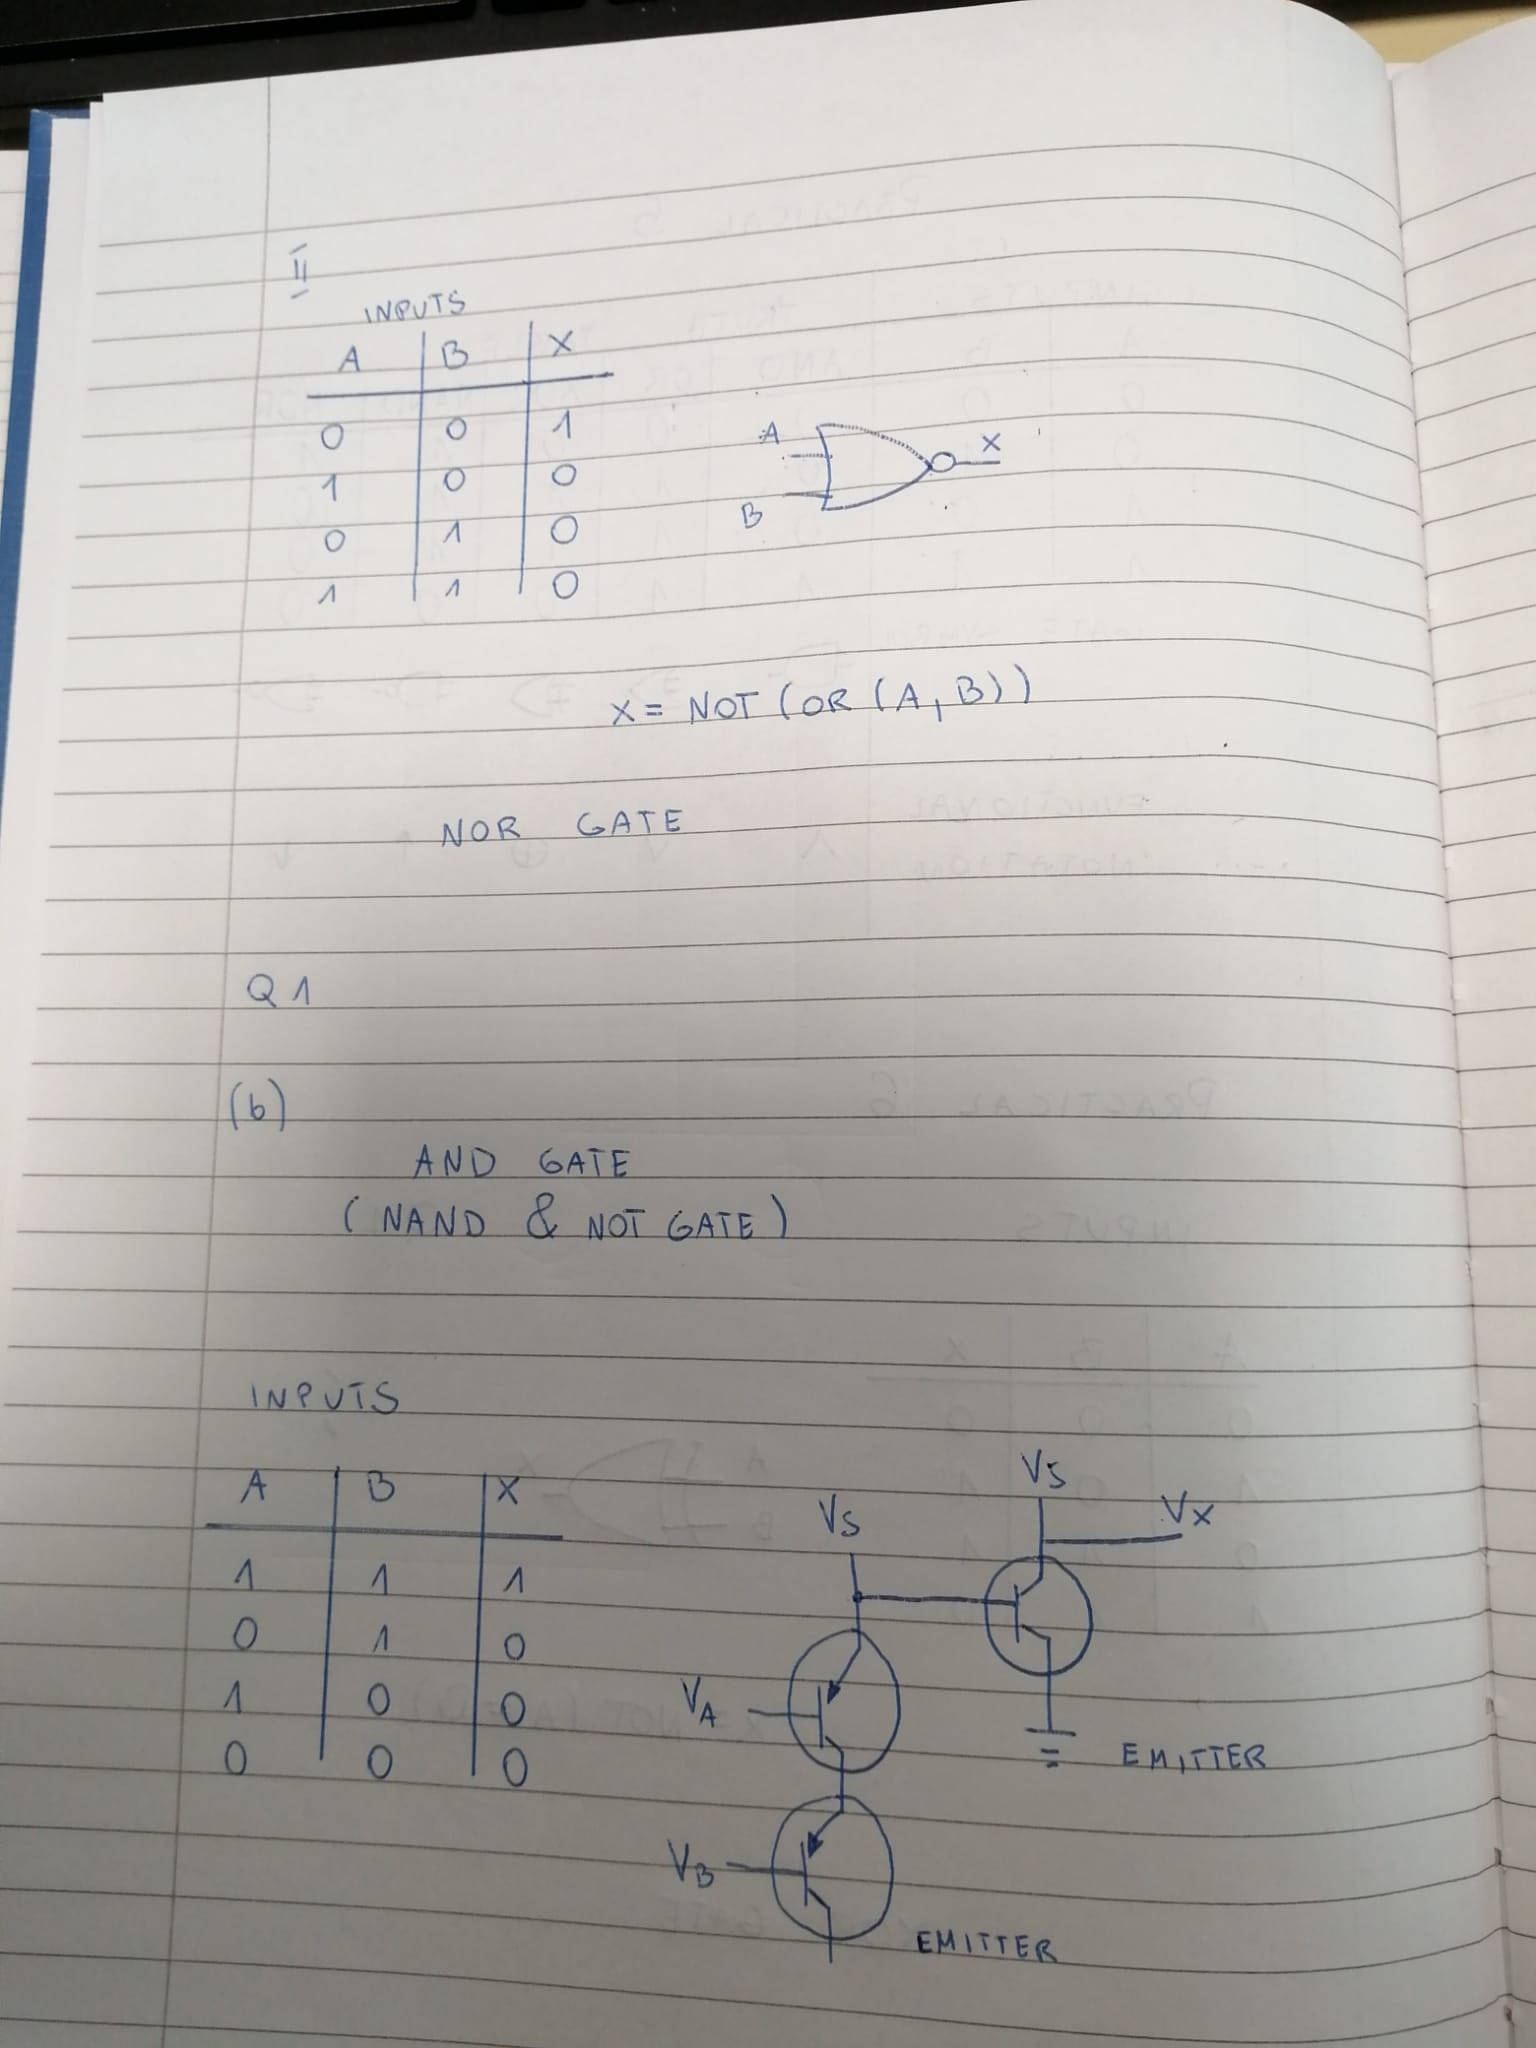 II
INPUTS
A B X
0 0 1
1 0 0
0 1 0
1 1 0
A
B
X
X = NOT (OR (A, B))
NOR GATE
Q1
(b)
AND GATE
(NAND & NOT GATE)
INPUTS
A B X
1 1 1
0 1 0
1 0 0
0 0 0
VS
VS
VX
VA
EMITTER
VB
EMITTER